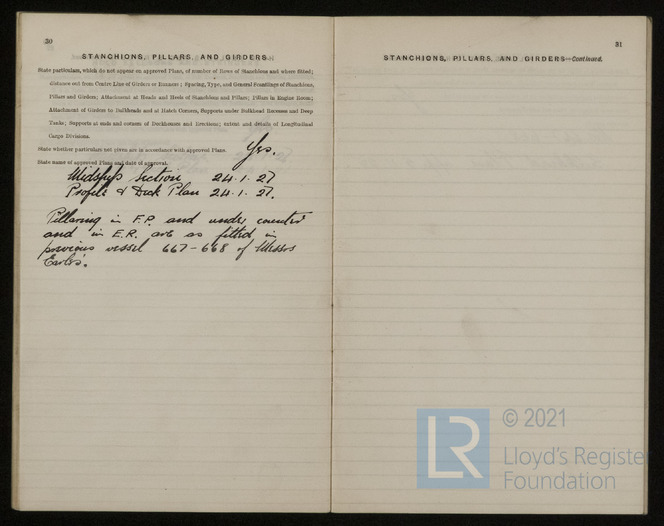 30
STANCHIONS, PILLARS, AND GIRDERS.
State particulars, which do not appear on approved Plans, of number of Rows of Stanchions and where fitted;
distance out from Centre Line of Girders or Runners; Spacing, Type, and General Scantlings of Stanchions,
Pillars and Girders; Attachment at Heads and Heels of Stanchions and Pillars; Pillars in Engine Room;
Attachment of Girders to Bulkheads and at Hatch Corners, Supports under Bulkhead Recesses and Deep
Tanks; Supports at ends and corners of Deckhouses and Erections; extent and details of Longitudinal
Cargo Divisions.
State whether particulars not given are in accordance with approved Plans. Yes.
State name of approved Plans and date of approval.
Midship Section 24.1.27
Profile & Deck Plan 24.1.27.
Pillaring in F.P. and under counter
and in E.R. are as fitted in
previous vessel 667-668 of Messrs
Earles'.
31
STANCHIONS, PILLARS, AND GIRDERS—Continued.
LR
© 2021
Lloyd's Register
Foundation